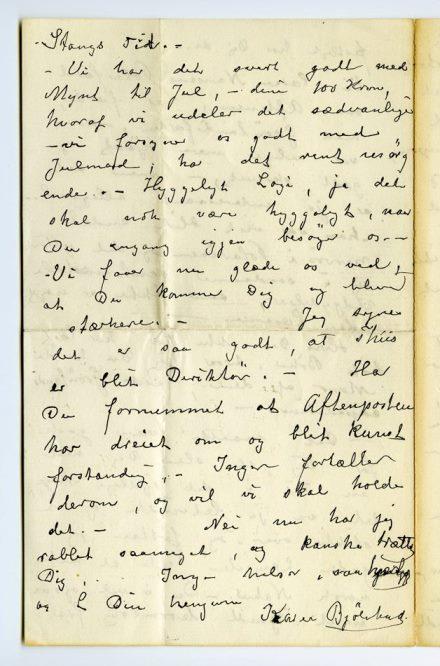 Stangs Tid. –
– Vi har det svært godt med
Mynt til Jul, – dine 100 Kron,
hvoraf vi udeler det sædvanlige
– vi forsyner os godt med
Julemad, har det rent
ende. – Hyggeligt Logi, ja det
skal nok være hyggeligt, naar
Du engang igjen besøger os –
– Vi faar nu glæde os ved,
at Du kommer Dig og bliver
stærkere. – Jeg synes
det er saa godt, at
er blit Direktør. – Har
Du fornummet at Aftenposten
har dreiet om og blit kunst
forstandig, – Inger fortæller
derom, og vil vi skal holde
det. – Nei nu har jeg
rablet saameget, og kanske trætte
Dig. Inga hilser, saa
og Din hengivne
Karen